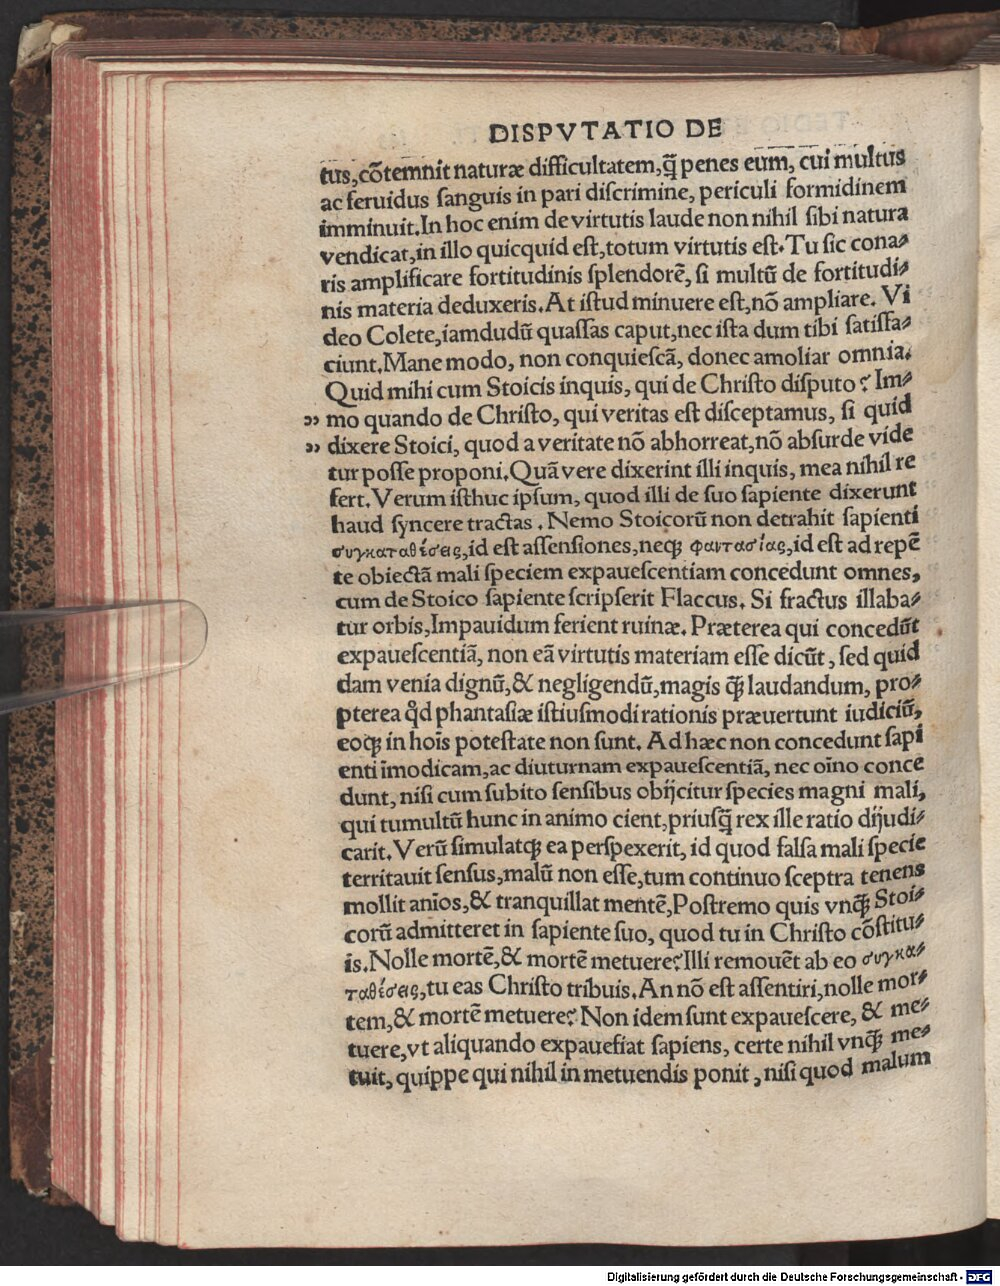 DISPVTATIO DE
tus,cõtemnit naturæ difficultatem,q̃ penes eum, cui multus
ac feruidus ſanguis in pari diſcrimine, periculi formidinem
imminuit.In hoc enim de virtutis laude non nihil ſibi natura
vendicat,in illo quicquid eſt,totum virtutis eſt.Tu ſic cona⸗
ris amplificare fortitudinis ſplendorẽ, ſi multũ de fortitudi⸗
nis materia deduxeris.At iſtud minuere eſt,nõ ampliare. Vi
deo Colete,iamdudũ quaſſas caput,nec iſta dum tibi ſatiſfa⸗
ciunt.Mane modo, non conquieſcã, donec amoliar omnia.
Quid mihi cum Stoicis inquis, qui de Chriſto diſputo? Im⸗
„ mo quando de Chriſto, qui veritas eſt diſceptamus, ſi quid
„ dixere Stoici, quod a veritate nõ abhorreat,nõ abſurde vide
tur poſſe proponi.Quã vere dixerint illi inquis, mea nihil re
fert.Verum iſthuc ipſum, quod illi de ſuo ſapiente dixerunt
haud ſyncere tractas . Nemo Stoicorũ non detrahit ſapienti
συγκαταθέσεις,id eſt aſſenſiones,neqꝫ φαντασίας,id eſt ad repẽ
te obiectã mali ſpeciem expaueſcentiam concedunt omnes,
cum de Stoico ſapiente ſcripſerit Flaccus. Si fractus illaba⸗
tur orbis,Impauidum ferient ruinæ. Præterea qui concedũt
expaueſcentiã, non eã virtutis materiam eſſe dicũt, ſed quid
dam venia dignũ,& negligendũ,magis q̃ꝫ laudandum, pro⸗
pterea q̊d phantaſiæ iſtiuſmodi rationis præuertunt iudiciũ,
eoqꝫ in hoīs poteſtate non ſunt. Ad hæc non concedunt ſapi
enti īmodicam,ac diuturnam expaueſcentiã, nec oīno conce
dunt, niſi cum ſubito ſenſibus obijcitur ſpecies magni mali,
qui tumultũ hunc in animo cient,priuſq̃ rex ille ratio dijudi⸗
carit.Verũ ſimulatqꝫ ea perſpexerit, id quod falſa mali ſpecie
territauit ſenſus,malũ non eſſe,tum continuo ſceptra tenens
mollit anīos,& tranquillat mentẽ,Poſtremo quis vnq̃ꝫ Stoi⸗
corũ admitteret in ſapiente ſuo, quod tu in Chriſto cõſtitu⸗
is.Nolle mortẽ,& mortẽ metuere?Illi remouẽt ab eo συγκα⸗
ταθέσεις,tu eas Chriſto tribuis.An nõ eſt aſſentiri,nolle mor⸗
tem,& mortẽ metuere? Non idem ſunt expaueſcere, & me⸗
tuere,vt aliquando expauefiat ſapiens, certe nihil vnq̃ꝫ me⸗
tuit, quippe qui nihil in metuendis ponit , niſi quod malum
Digitalisierung gefördert durch die Deutsche Forschungsgemeinschaft - DFG